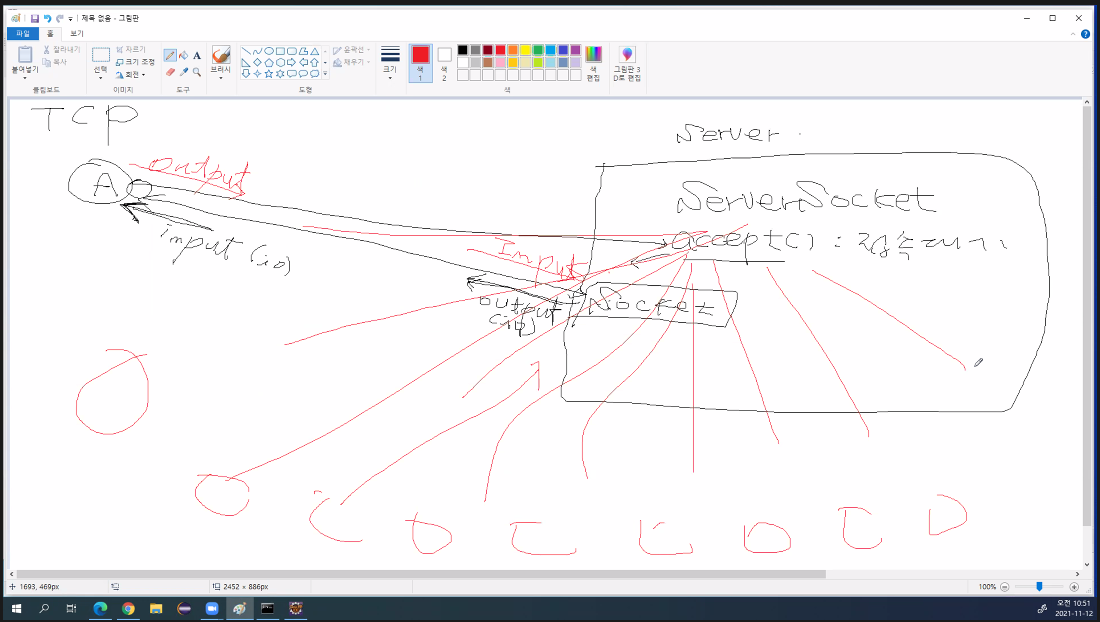 제목 없음 - 그림판
파일 홈 보기
붙여넣기
잘라내기
복사
클립보드
선택
자르기
크기 조정
회전
이미지
A
도구
브러시
윤곽선
채우기
도형
크기
색 1
색 2
색 편집
색
그림판 3D로 편집
TCP
Server
A
Output
ServerSocket
accept() :
input (io)
Input
output (io)
Socket
1693, 469px
2452 × 886px
100%
오전 10:51
2021-11-12